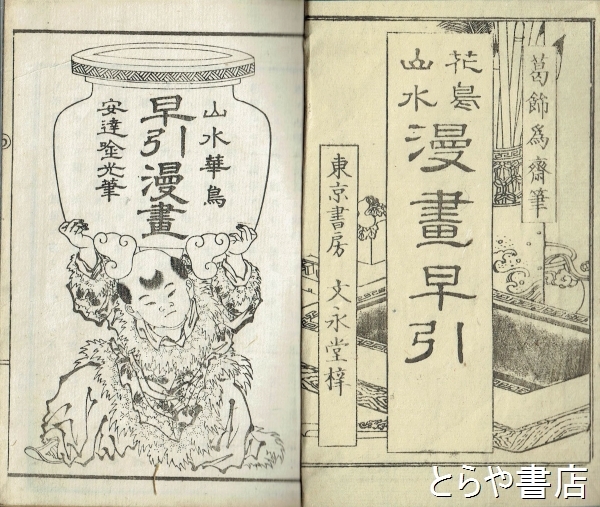 葛飾為齋筆
花鳥
山水
漫畫早引
東京書房 文永堂梓
山水華鳥
早引漫畫
安達吟光筆
とらや書店